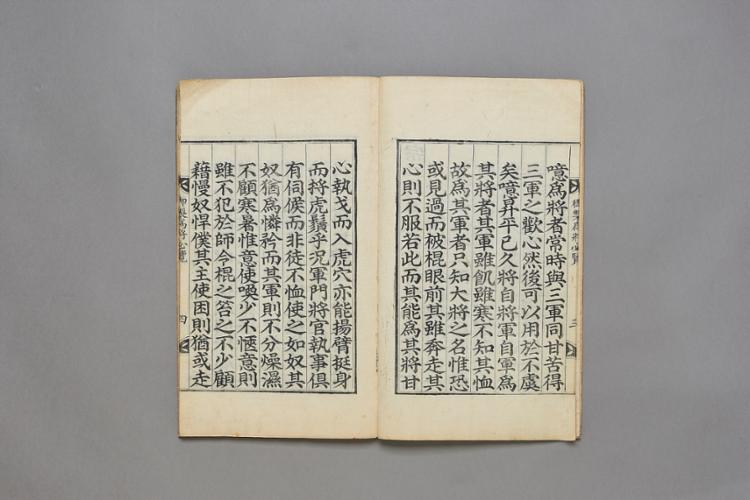 噫爲將者常時與三軍同甘苦得
三軍之歡心然後可以用於不虞
矣噫昇平已久將自將軍自軍爲
其將者其軍雖飢雖寒不知其恤
故爲其軍者只知大將之名惟恐
或見過而被棍眼前其雖奔走其
心則不服若此而其能爲其將甘
心執戈而入虎穴亦能揚臂挺身
而捋虎鬚乎況軍門將官執事俱
有伺候而非徒不恤使之如奴其
奴猶爲憐矜而其軍則不分燥濕
不顧寒暑惟意使喚少不愜意則
雖不犯於師令棍之笞之不少顧
藉慢奴悍僕其主使因則猶或走
御製爲將必覽
三
御製爲將必覽
四